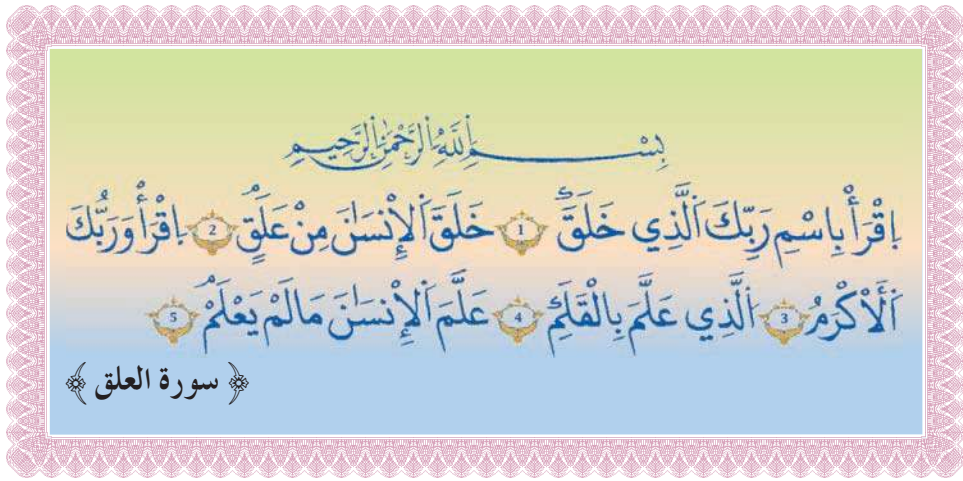 بِسْمِ اِ۬للَّهِ اِ۬لرَّحْمَٰنِ اِ۬لرَّحِيمِ
اِ۪قْرَأْ بِاسْمِ رَبِّكَ اَ۬لَّذِي خَلَقَۖ 1 خَلَقَ اَ۬لْإِنْسَٰنَ مِنْ عَلَقٍۖ 2 اِ۪قْرَأْ وَرَبُّكَ
اَ۬لْأَكْرَمُ 3 اُ۬لَّذِي عَلَّمَ بِالْقَلَمِۖ 4 عَلَّمَ اَ۬لْإِنْسَٰنَ مَا لَمْ يَعْلَمْۖ 5
﴿ سورة العلق ﴾